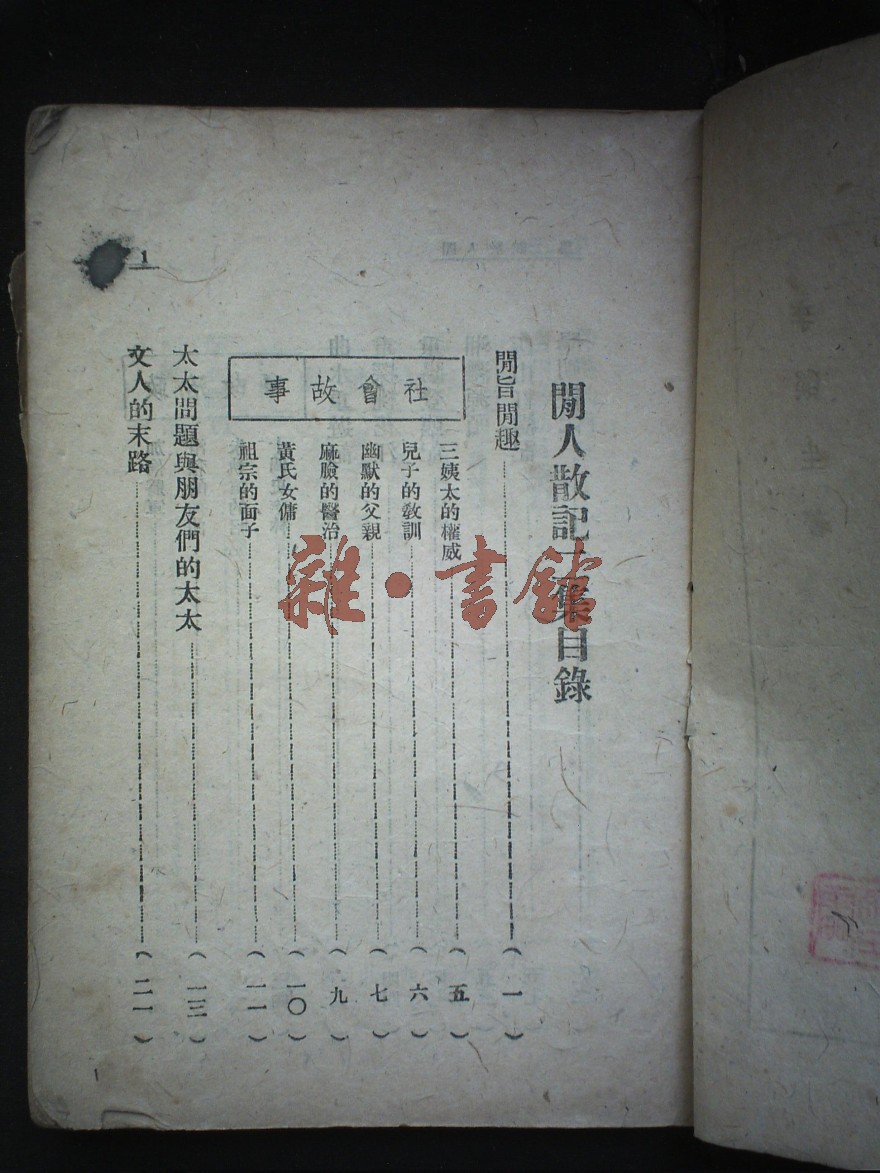 閒人散記二集目錄
閒旨閒趣(一)
社會故事
三姨太的權威(五)
兒子的教訓(六)
幽默的父親(七)
麻臉的醫治(九)
黃氏女傭(一〇)
祖宗的面子(一一)
太太問題與朋友們的太太(一三)
文人的末路(二一)
1
雜·書館